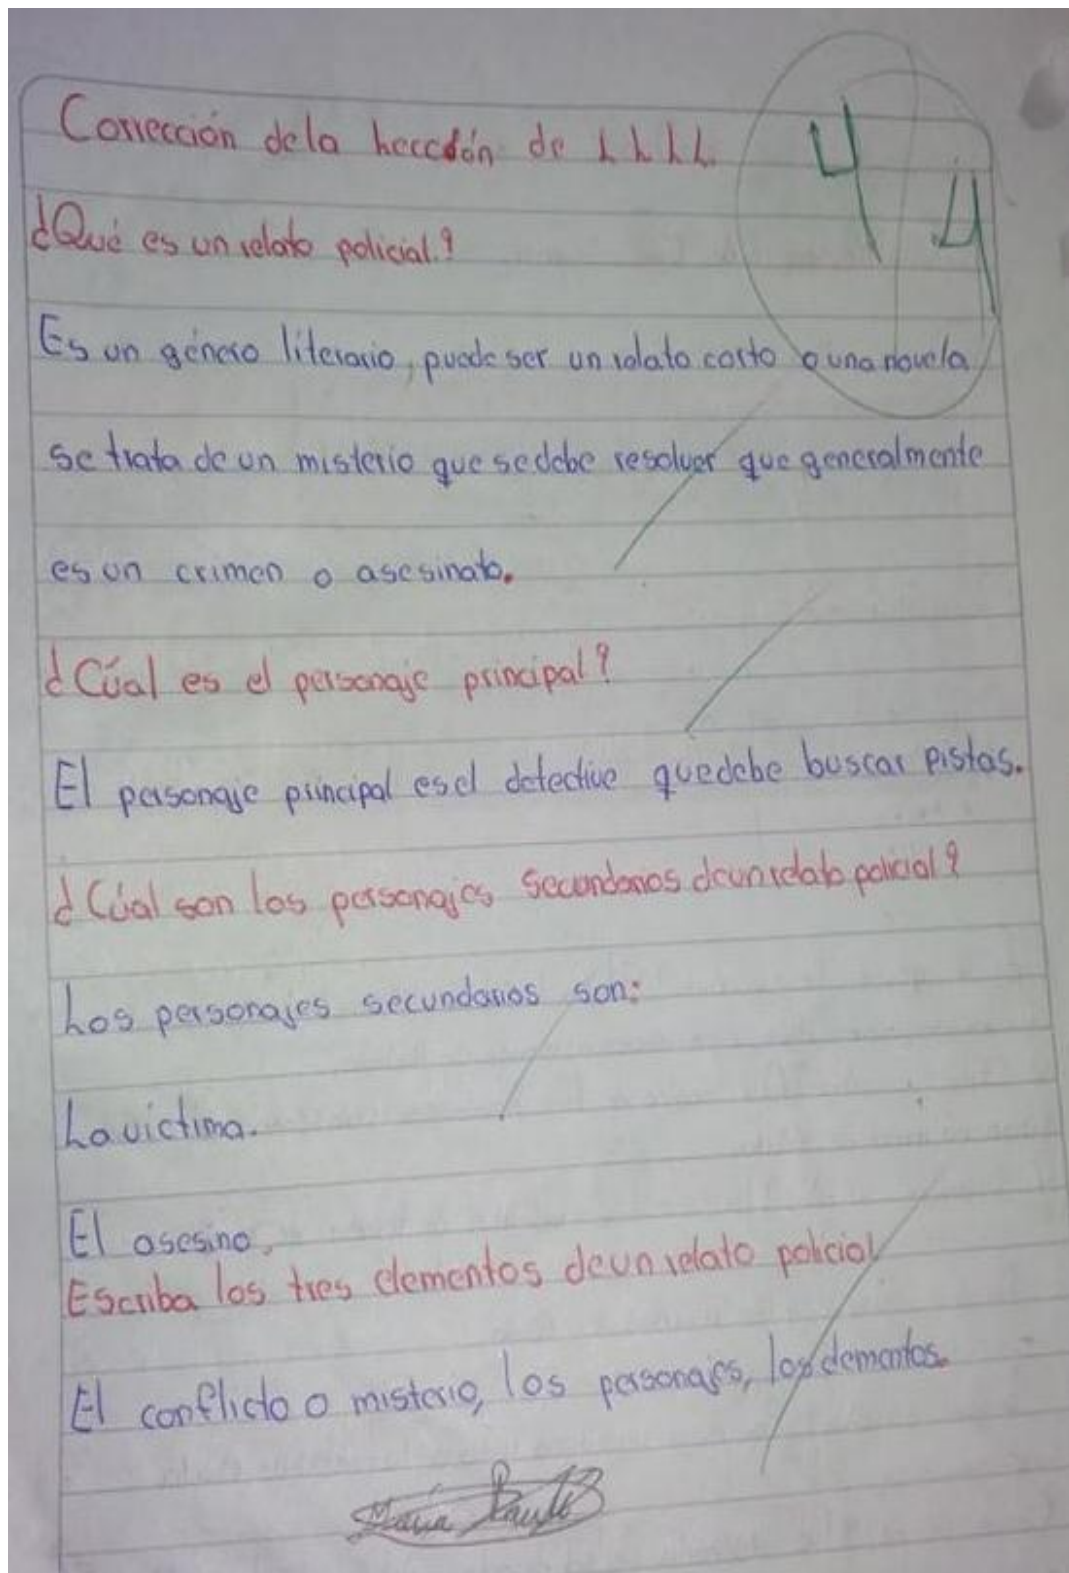 Corrección dela Lección de LLLL
4 4
¿Qué es un relato policial?
Es un género literario, puede ser un relato corto o una novela
se trata de un misterio que se debe resolver que generalmente
es un crimen o asesinato.
¿Cúal es el personaje principal?
El personaje principal es el detective que debe buscar pistas.
¿Cúal son los personajes secundarios de un relato policial?
Los personajes secundarios son:
La victima.
El asesino.
Escriba los tres elementos de un relato policial
El conflicto o misterio, los personajes, los elementos.